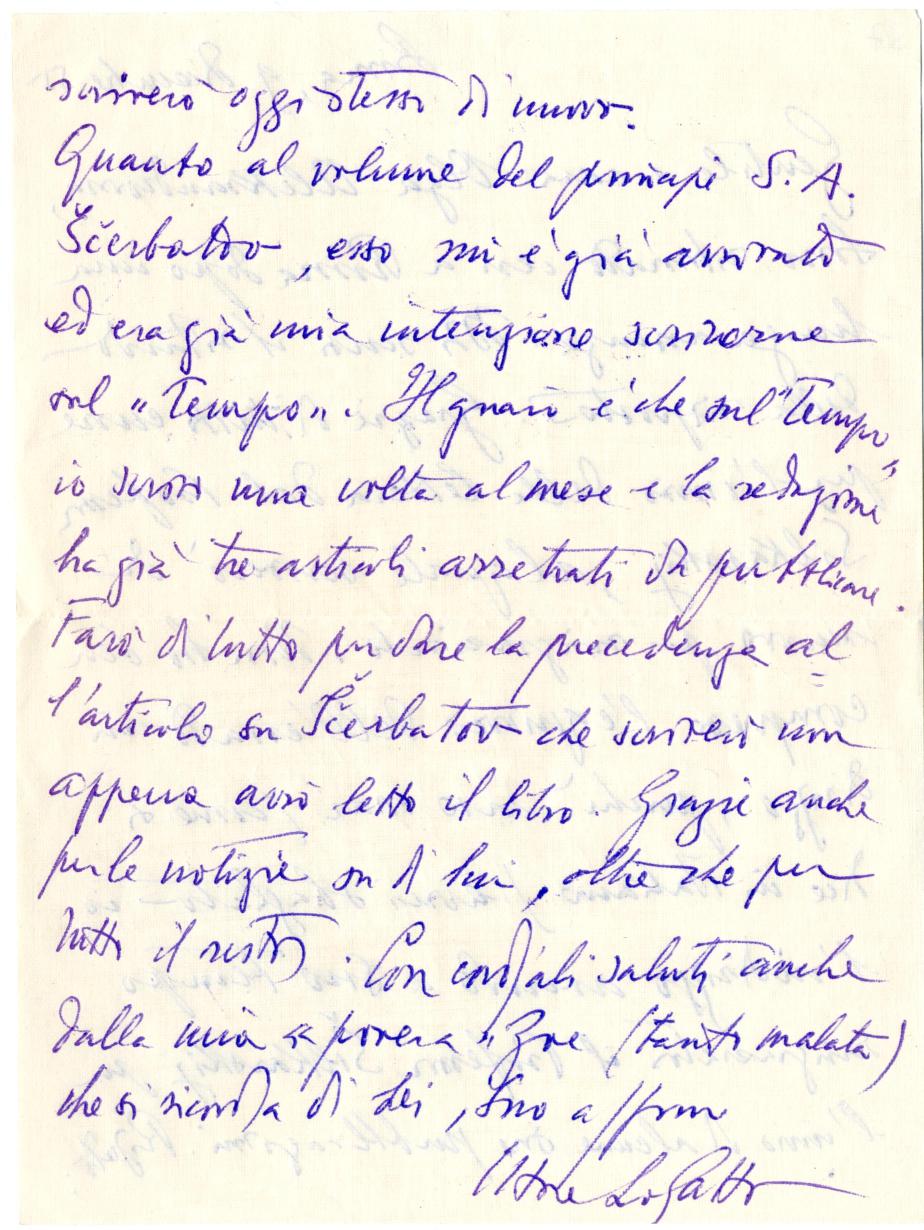 scriverò oggi stesso di nuovo.
Quanto al volume del principe S. A.
Ščerbatov, esso mi è già arrivato
ed era già mia intenzione scriverne
sul "Tempo". Il guaio è che sul "Tempo"
io scrivo una volta al mese e la redazione
ha già tre articoli arretrati da pubblicare.
Farò di tutto per dare la precedenza al=
l'articolo su Ščerbatov che scriverò non
appena avrò letto il libro. Grazie anche
per le notizie su di lui, oltre che per
tutto il resto. Con cordiali saluti anche
dalla mia "povera" Zoe (tanto malata)
che si ricorda di Lei, Suo aff.mo
Ettore Lo Gatto